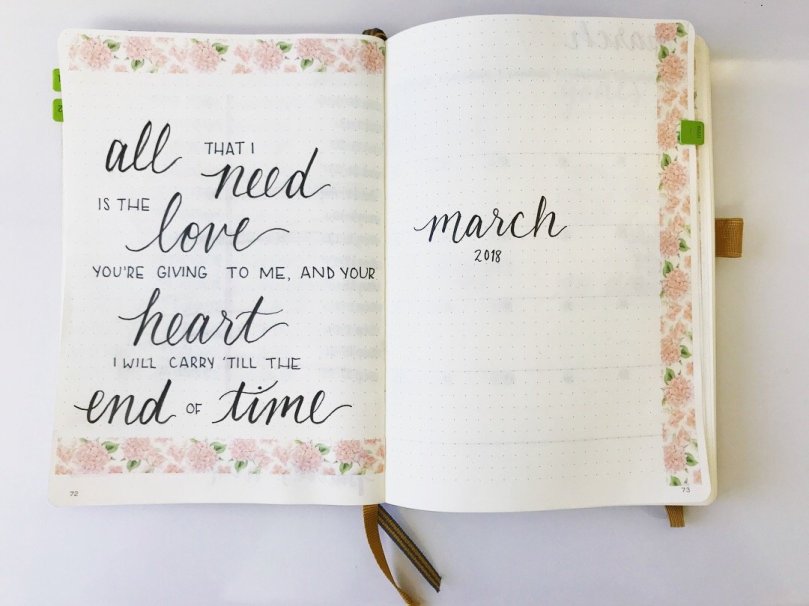 all THAT I
need
IS THE
love
YOU'RE GIVING TO ME, AND YOUR
heart
I WILL CARRY 'TILL THE
end OF time
72
march
2018
73